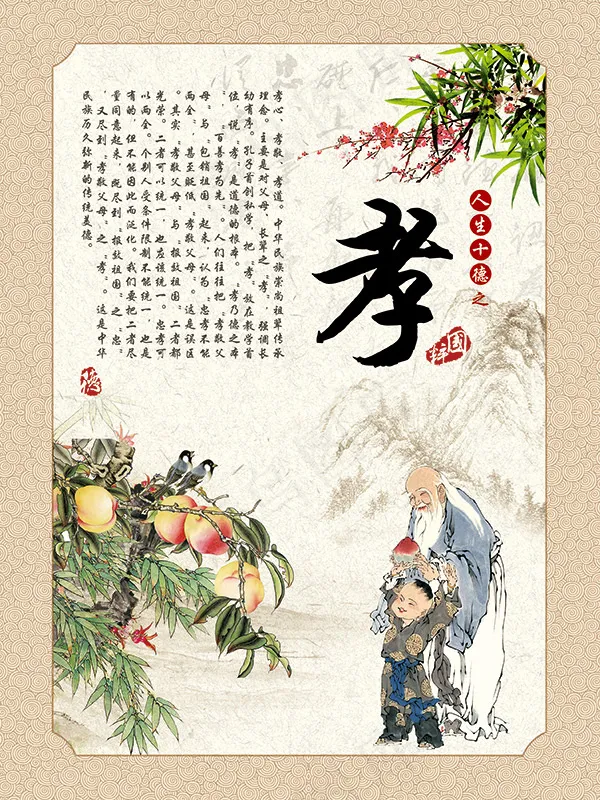 人生十德之
孝
国粹
孝心、孝敬、孝道。中华民族崇尚祖辈传承
理念。主要是对父母、长辈之“孝”，强调长
幼有序。孔子首创私学，把“孝”放在教学首
位，说“孝”是道德的根本。“孝乃德之本
”，“百善孝为先”。人们往往把“孝敬父
母”与“包销祖国”起来，认为“忠孝不能
两全”，甚至贬低“孝敬父母”。这是误区
。其实，“孝敬父母”与“报效祖国”二者都
光荣。二者可以统一，也应该统一。忠孝可
以两全。个别人受条件限制不能统一，也是
有的，但不能因此而泛化。我们要把二者尽
量同意起来，既尽到“报效祖国”之“忠”
，又尽到“孝敬父母”之“孝”。这是中华
民族历久弥新的传统美德。
德